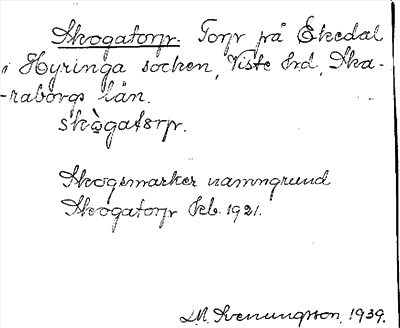 Skogatorp. Torp på Ekedal
i Hyringa socken, Viste hrd, Ska-
-raborgs län.
skògatårp.
Skogsmarker namngrund
Skogatorp Kb. 1921.
M. Svenungsson, 1939.